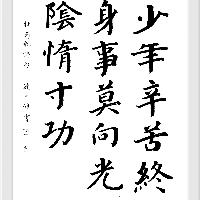 少年辛苦終
身事莫向光
陰惰寸功